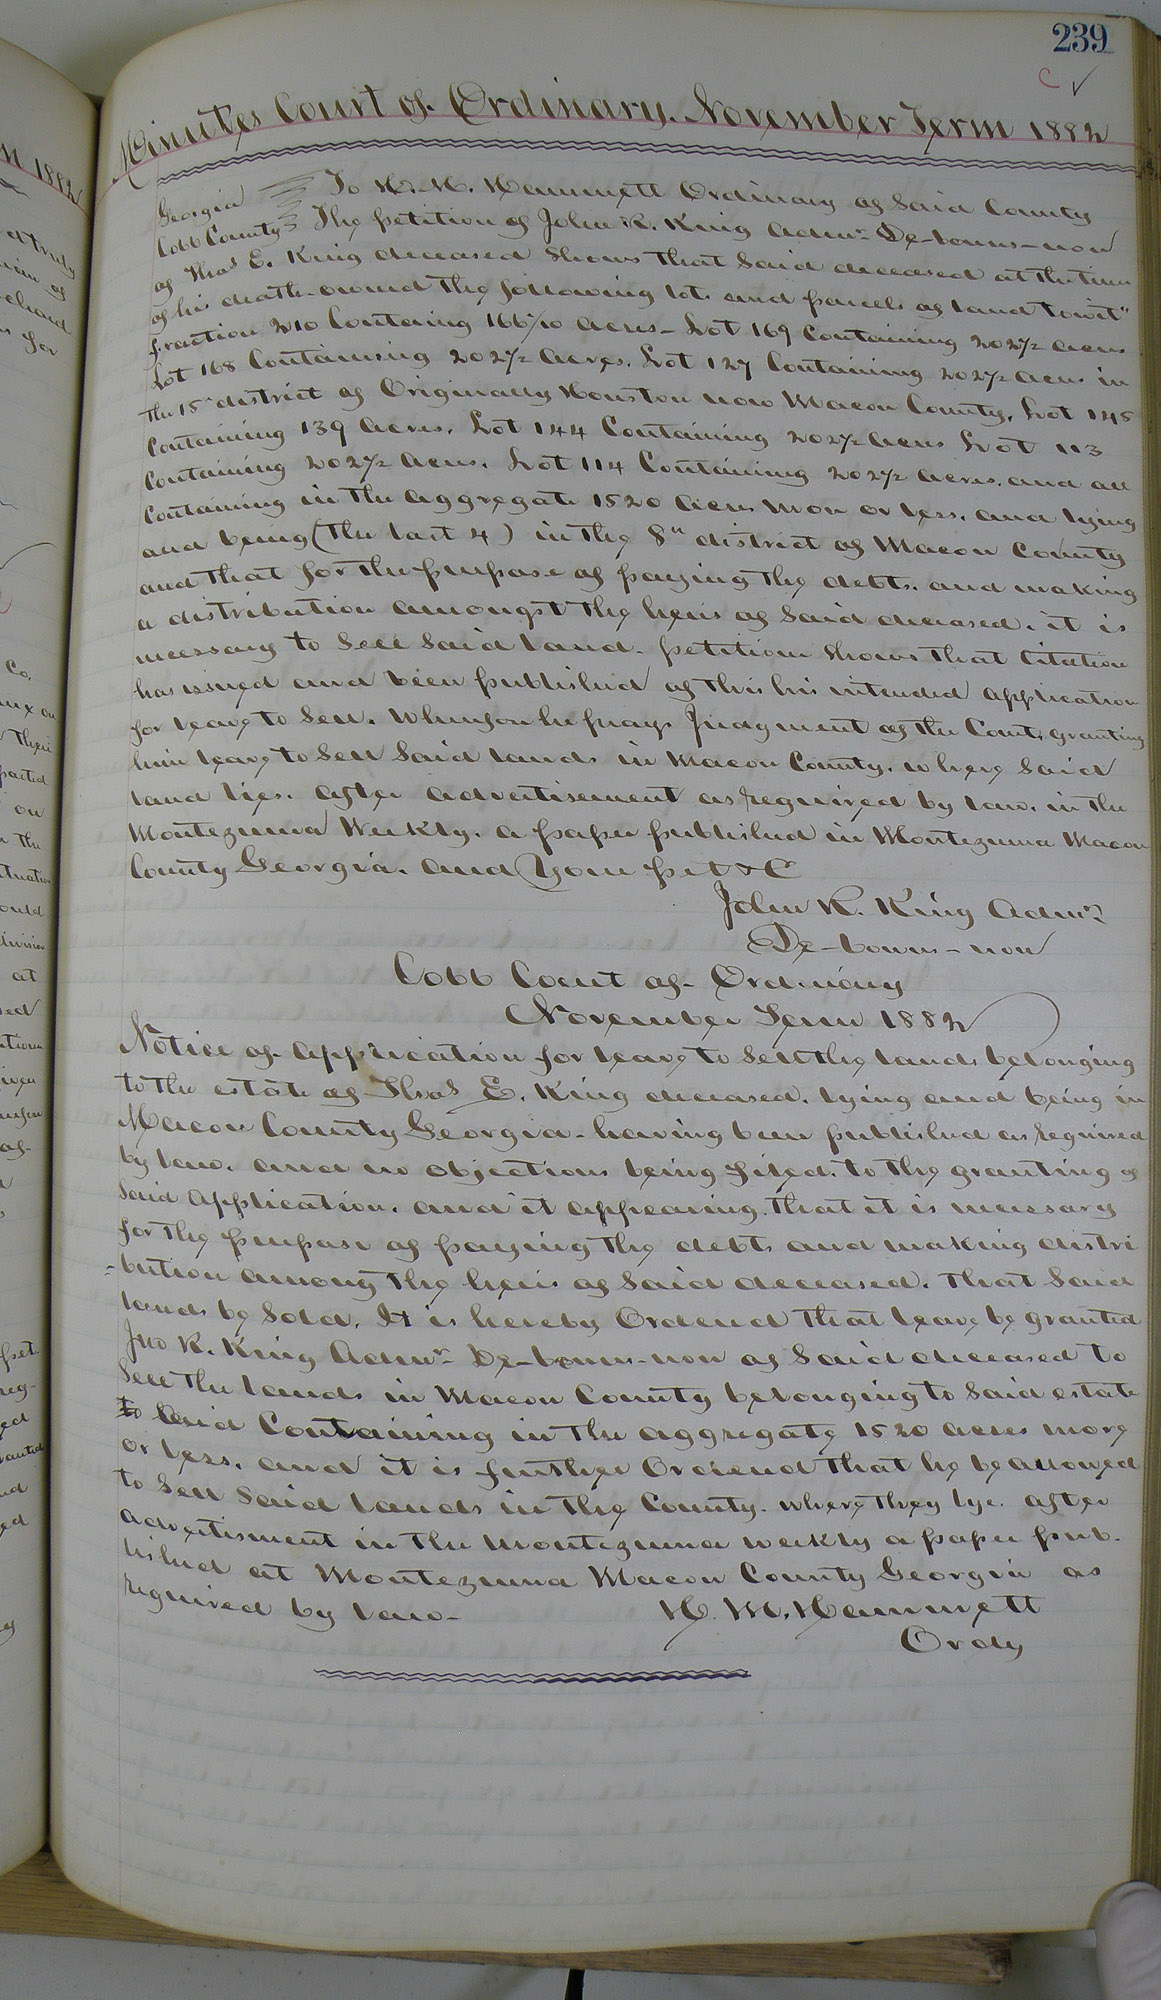 239
Minutes Court of Ordinary. November Term 1882
Georgia To H. M. Hammett Ordinary of said County
Cobb County The petition of John R. King Admr. De-bonus-non
of Thos E. King deceased shows that said deceased at the time
of his death owned the following lots and parcels of land towit"
fraction 210 Containg 166 7/10 acres – Lot 169 Containing 202½ acres
Lot 168 Containing 202½ acres. Lot 127 Containing 202½ acres in
the 15th district of Originally Houston now Macon County. Lot 145
Containing 139 acres. Lot 144 Containing 202½ acres Lot 113
Containing 202½ acres. Lot 114 Containing 202½ acres. and all
Containing in the aggregate 1520 acres more or less. and lying
and being (the last 4) in the 8th district of Macon County
and that for the purpose of paying the debts. and making
a distribution amongst the heirs of said deceased. it is
necessary to sell said land. petition shows that Citation
has issued and been published of this his intended application
for leave to sell. Wherefore he prays Judgment of the Court, granting
him leave to sell said lands in Macon County. where said
land lies. after advertisement as required by law. in the
Montezuma Weekly. a paper published in Montezuma Macon
County Georgia. and your pet &C
John R. King Admr.
De-bonus-non
Cobb Court of Ordinary
November Term 1882
Notice of application for leave to sell the lands belonging
to the estate of Thos E. King deceased. lying and being in
Macon County Georgia – having been published as required
by law. and no objections being filed. to the granting of
said application. and it appearing. that it is necessary
for the purpose of paying the debts and making distri
-bution among the heirs of said deceased. that said
lands be sold. It is hereby Ordered that leave be granted
Jno R. King Admr- De-bonus-non of said deceased to
sell the lands in Macon County belonging to said estate
to Said Containing in the aggregate 1520 acres more
or less. and it is further Ordered that he be allowed
to sell said lands in the County. where they lye. after
advertisment in the Montezuma weekly a paper pub.
lished at Montezuma Macon County Georgia as
required by law – H. M. Hammett
Ordy